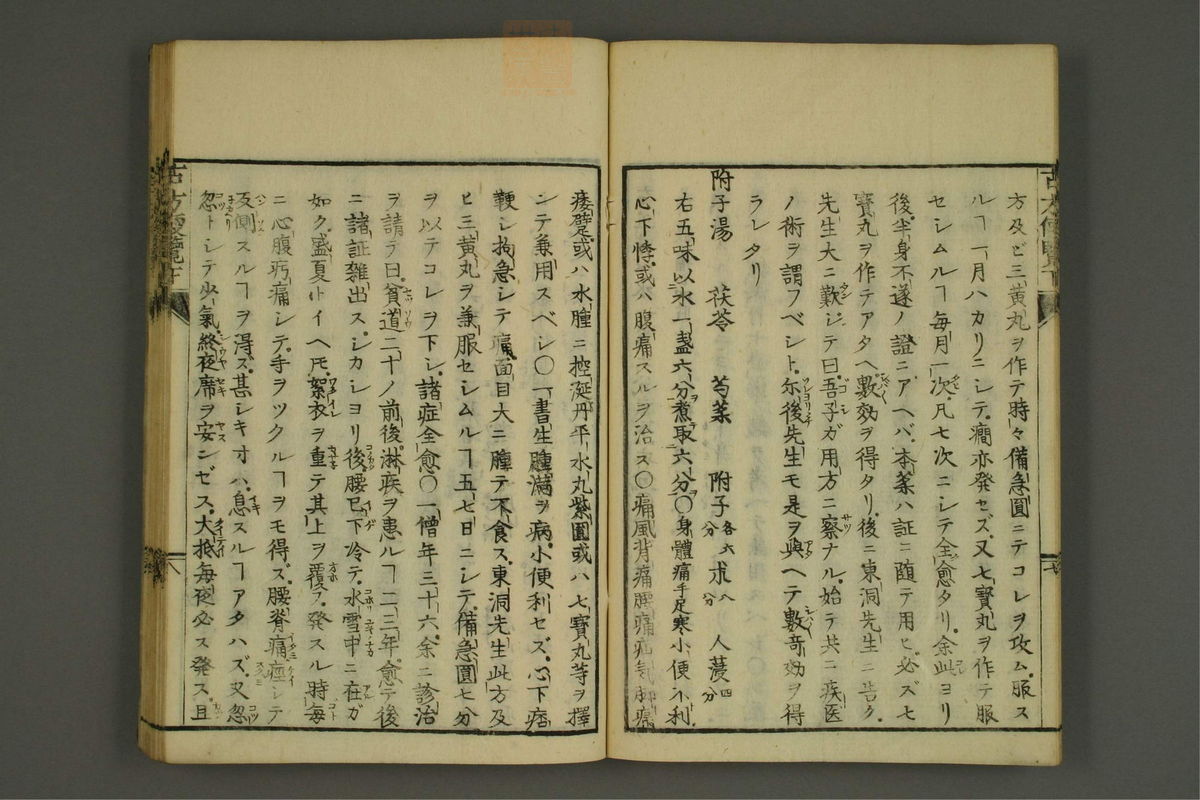 方及ビ三黄丸ヲ作テ時々備急圓ニテコレヲ攻ム。服ス
ルヿ一月ハカリニシテ。癎亦発セズ。又七寳丸ヲ作テ服
セシムルヿ毎月一次。凡七次ニシテ全愈タリ。余此ヨリ
後。半身不遂ノ證ニアヘバ。本薬ハ証ニ随テ用ヒ。必ズ七
寳丸ヲ作テアタヘ。數効ヲ得タリ。後ニ東洞先生ニ告ク。
先生大ニ歎ジテ曰。吾子ガ用方ニ察ナル。始テ共ニ疾医
ノ術ヲ謂フベシト。尓後先生モ是ヲ與ヘテ數奇効ヲ得
ラレタリ
附子湯 茯苓 芍薬 附子各六分 朮八分 人蓡四分
右五味以水一盞六分煮取六分〇身體痛手足寒小便不利。
心下悸。或ハ腹痛スルヲ治ス〇痛風背痛腰痛疝気脚痛
痿躄或ハ水腫ニ控涎丹平水丸紫圓或ハ七寳丸等ヲ擇
ンテ兼用スベシ〇一書生腫滿ヲ病。小便利セズ。心下痞
鞕シ拘急シテ痛。面目大ニ腫テ不食ス。東洞先生此方及
ヒ三黄丸ヲ兼服セシムルヿ五七日ニシテ。備急圓七分
ヲ以テコレヲ下シ。諸症全愈〇一僧年三十六。余ニ診治
ヲ請テ曰。貧道二十ノ前後。淋疾ヲ患ルヿ二三年。愈テ後
ニ諸証雑出ス。シカシヨリ後腰已下冷テ。水雪中ニ在ガ
如ク。盛夏トイヘ𪜈。絮衣ヲ重テ其上ヲ覆フ。発スル時毎
ニ心腹㽲痛シテ。手ヲツクルヿヲモ得ズ。腰脊痛痙シテ
反側スルヿヲ得ズ。甚シキオハ。息スルヿアタハズ。又忽
忽トシテ少氣。終夜席ヲ安ンゼス。大抵毎夜必ス発ス。且